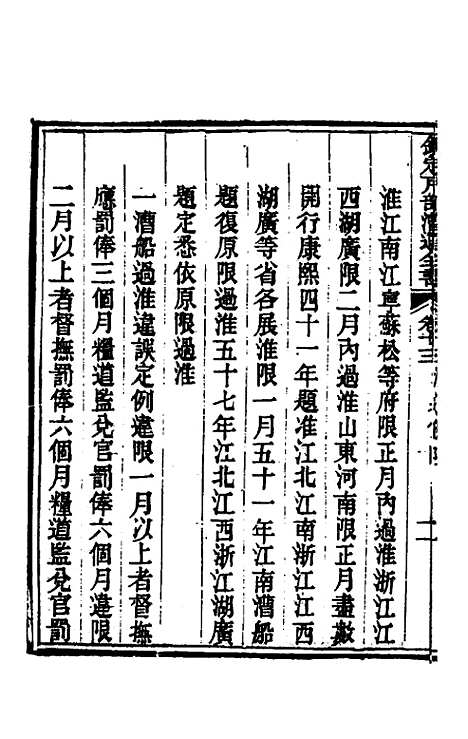 欽定戶部漕運全書 卷十三
淮江南江寧蘇松等府限正月內過淮浙江江
西湖廣限二月內過淮山東河南限正月盡數
開行康熙四十一年題准江北江南浙江江西
湖廣等省各展淮限一月五十一年江南漕船
題復原限過淮五十七年江北江西浙江湖廣
題定悉依原限過淮
一漕船過淮違誤定例違限一月以上者督撫
應罰俸三個月糧道監兌官罰俸六個月違限
二月以上者督撫罰俸六個月糧道監兌官罰